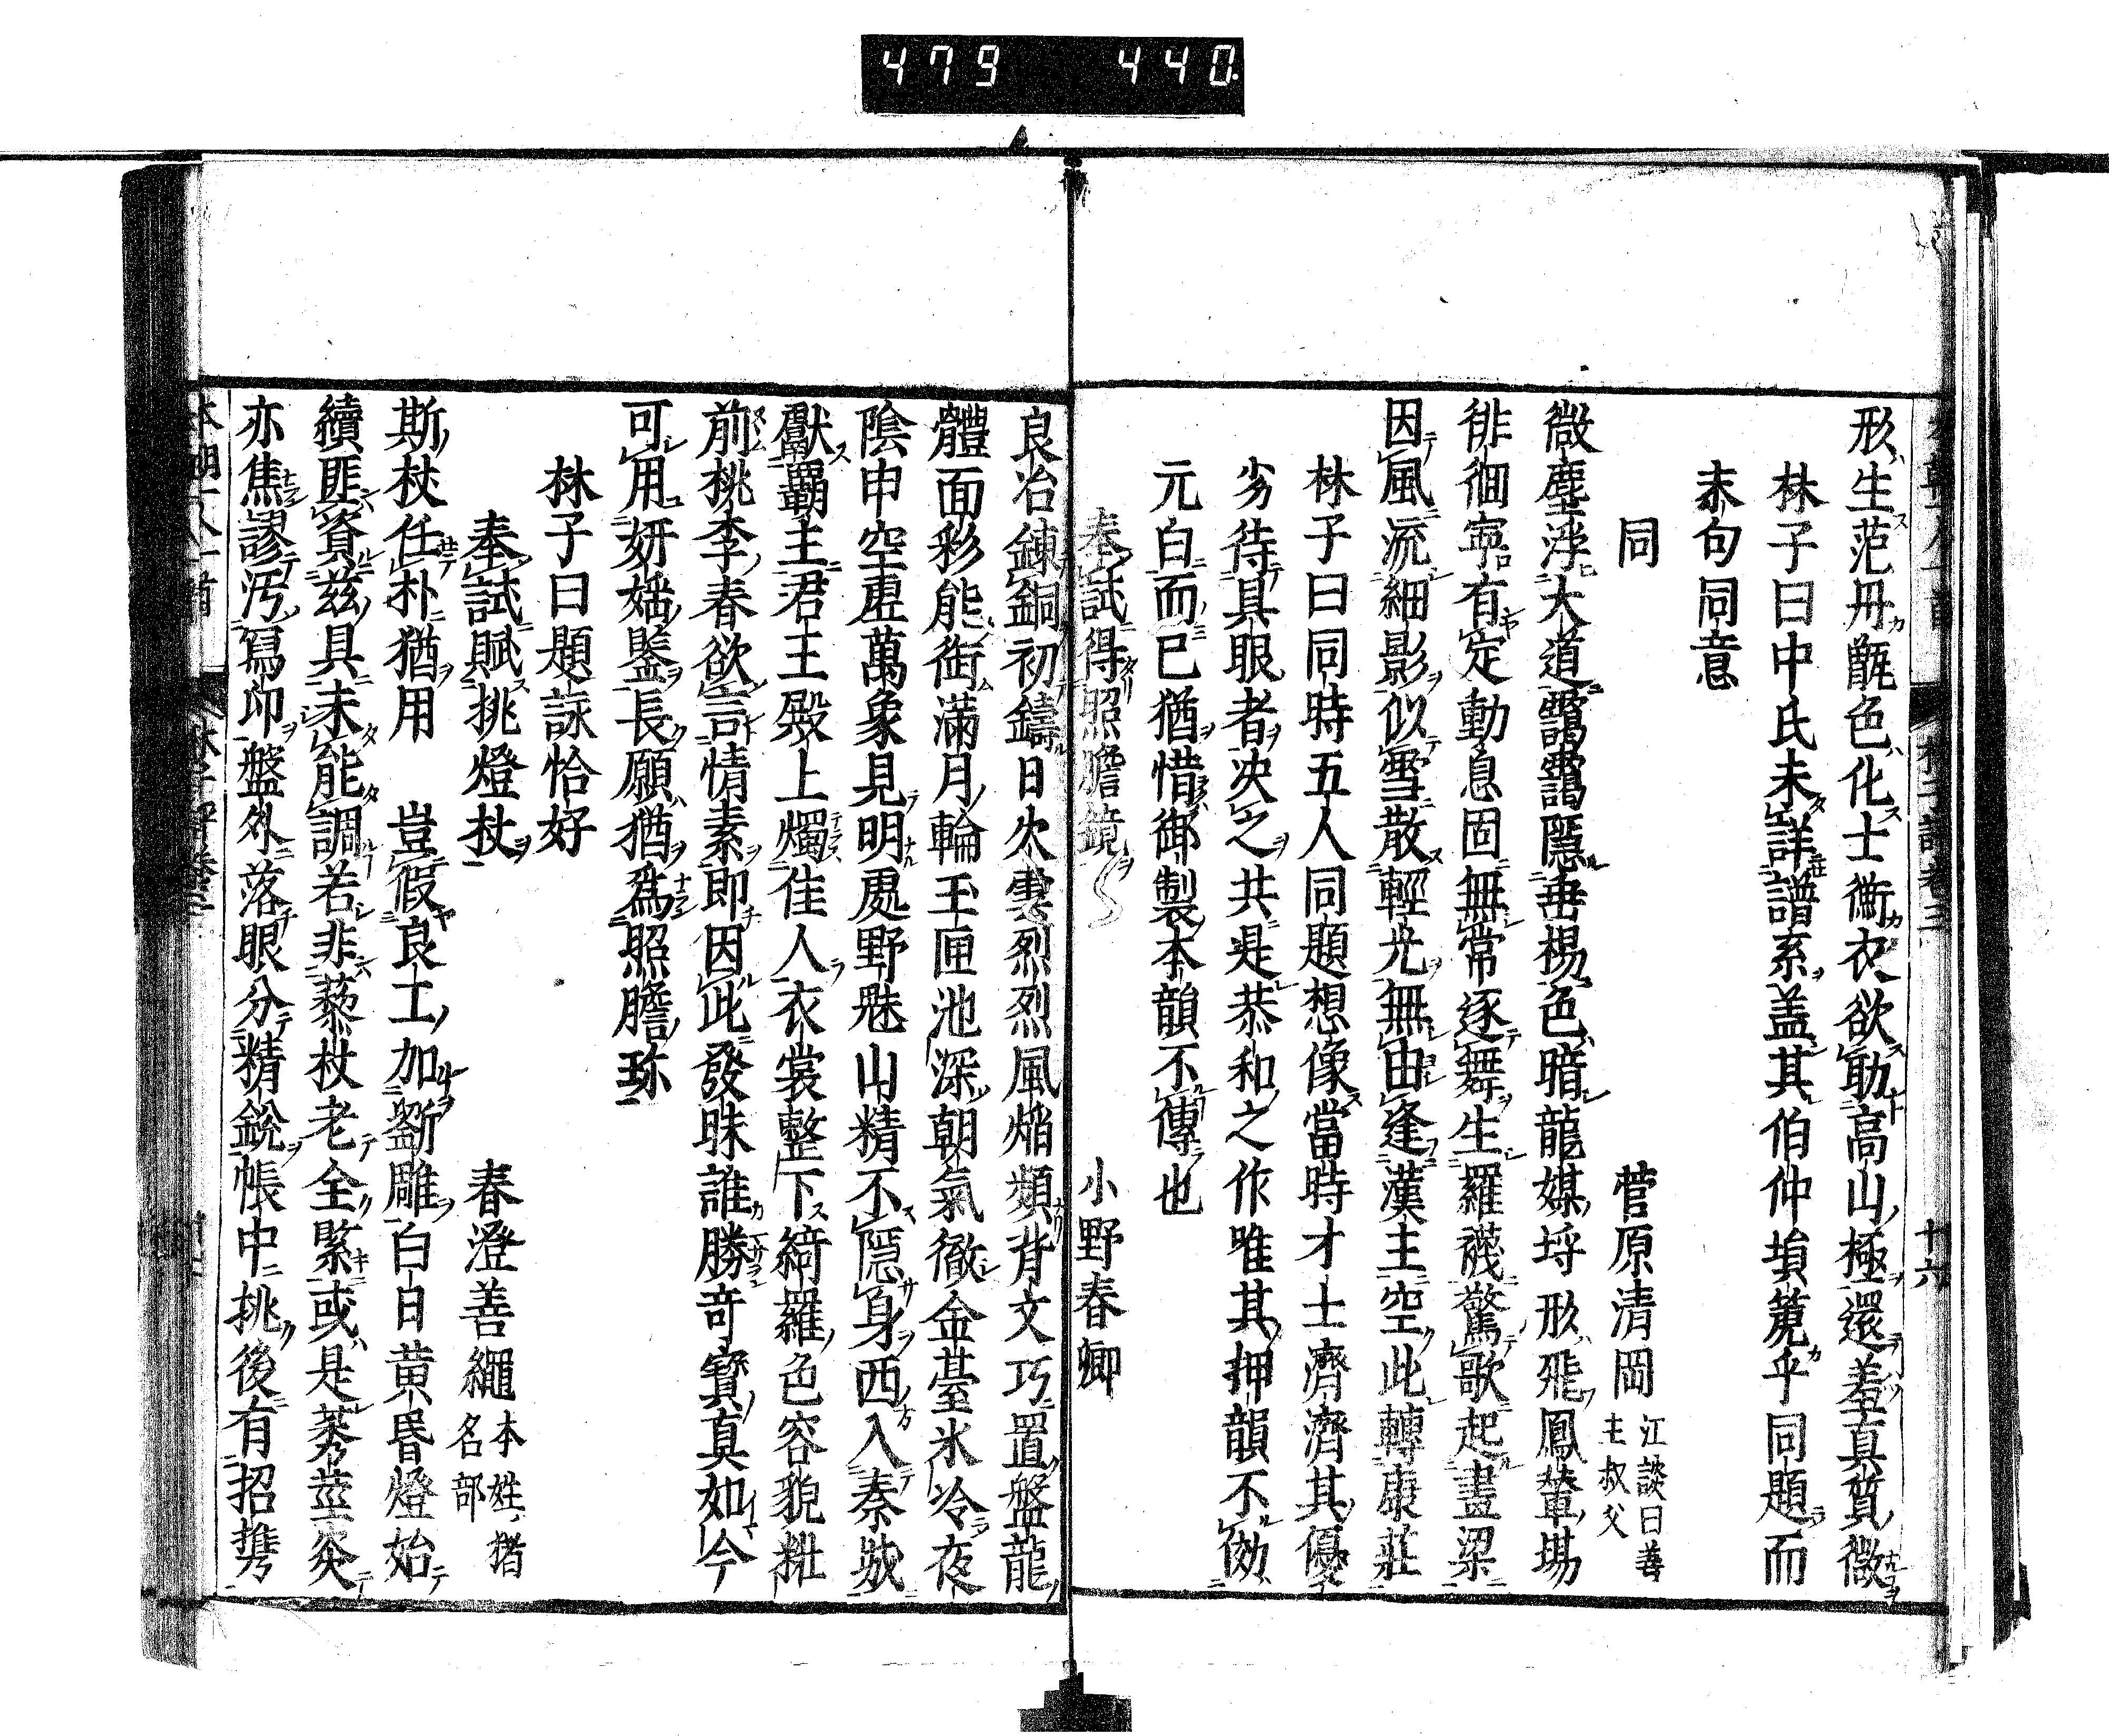 479 440
十六
形生范丹甑色化士衡衣欲助高山極還羞真質微
林子曰中氏未詳譜系盖其伯仲塤篪乎同題而
末句同意
同 菅原清岡 江談曰善主叔父
微塵浮大道靄靄隱垂楊色暗龍媒埒形飛鳳輦場
徘徊寧有定動息固無常逐舞生羅襪驚歌起畫梁
因風流細影似雪散輕光無由逢漢主空此轉康莊
林子曰同時五人同題想像當時才士濟濟其優
劣待具眼者决之共是恭和之作唯其押韻不傚
元白而已猶惜御製本韻不傳也
奉試得照膽鏡 小野春卿
良冶鍊銅初鑄日火雲烈烈風焔頻背文巧置盤龍
體面彩能銜滿月輪玉匣池深朝氣徹金臺氷冷夜
陰申空虛萬象見明處野魅山精不隱身西入秦城
獻霸主君王殿上燭佳人衣裳整下綺羅色容貌粧
前桃李春欲言情素即因此發昧誰勝奇寶真如今
可用妍媸鑒長願猶爲照膽珎
林子曰題詠恰好
奉試賦挑燈杖 春澄善繩 本姓猪名部
斯杖任朴猶用 豈假良工加斵雕白日黄昏燈始
續匪資茲具未能調若非藜杖老全緊或是莠莖灸
亦焦謬汚寫印盤外落眼分精銳帳中挑後有招携